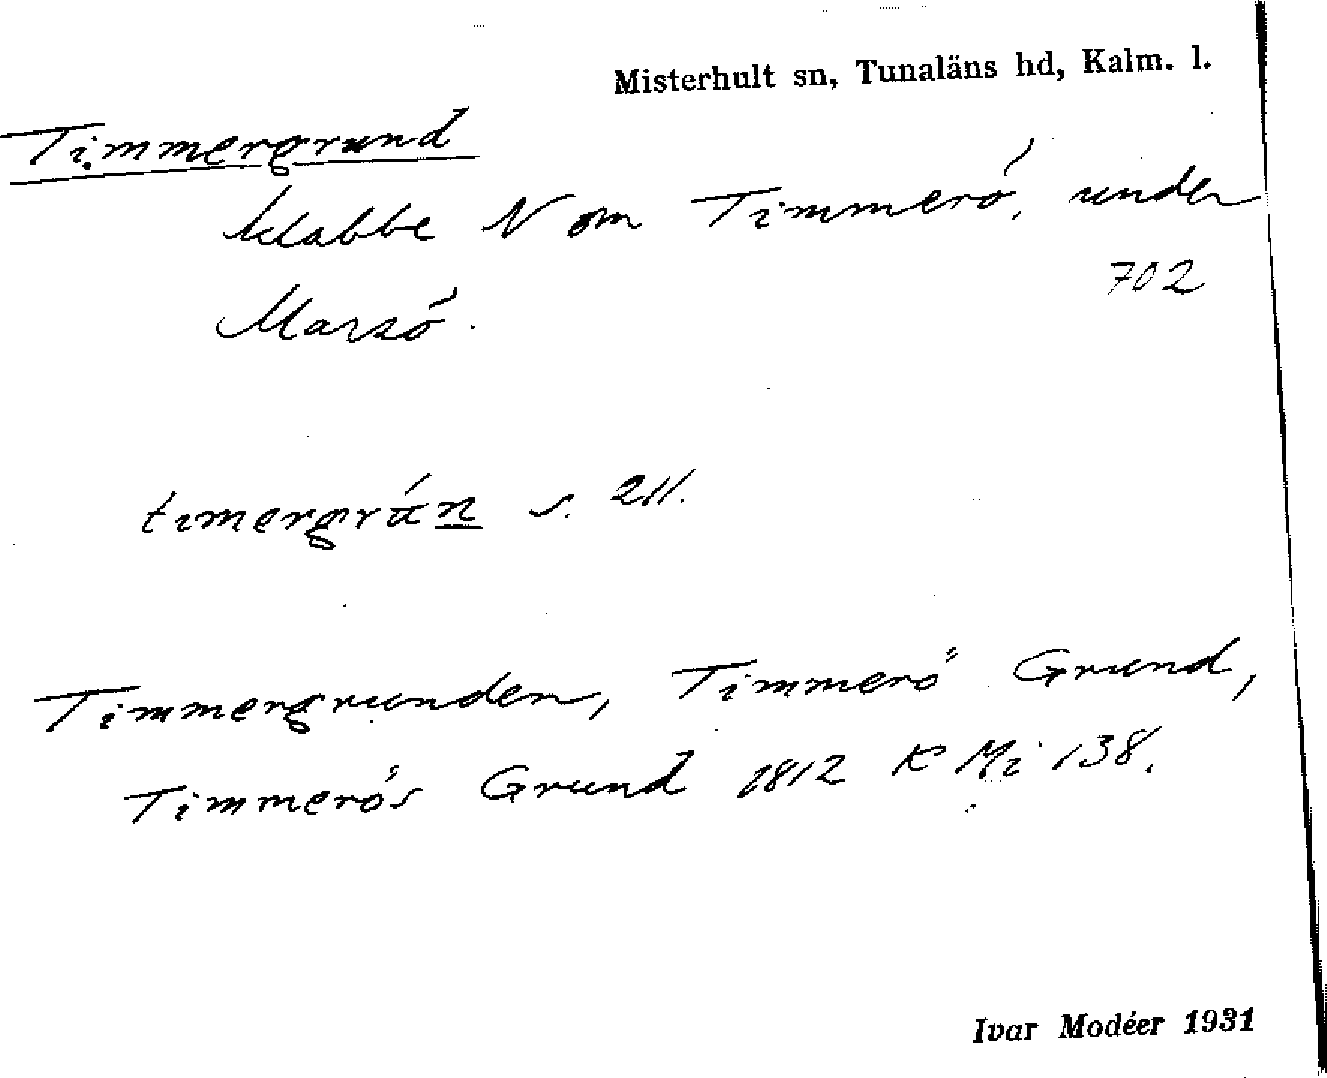 Misterhult sn, Tunaläns hd, Kalm. l.
Timmergrund
klabbe N om Timmerö, under
702
Marsö.
timergrún s. 211.
Timmergrunden, Timmerö Grund,
Timmerös Grund 1812 K Mi 138.
Ivar Modéer 1931